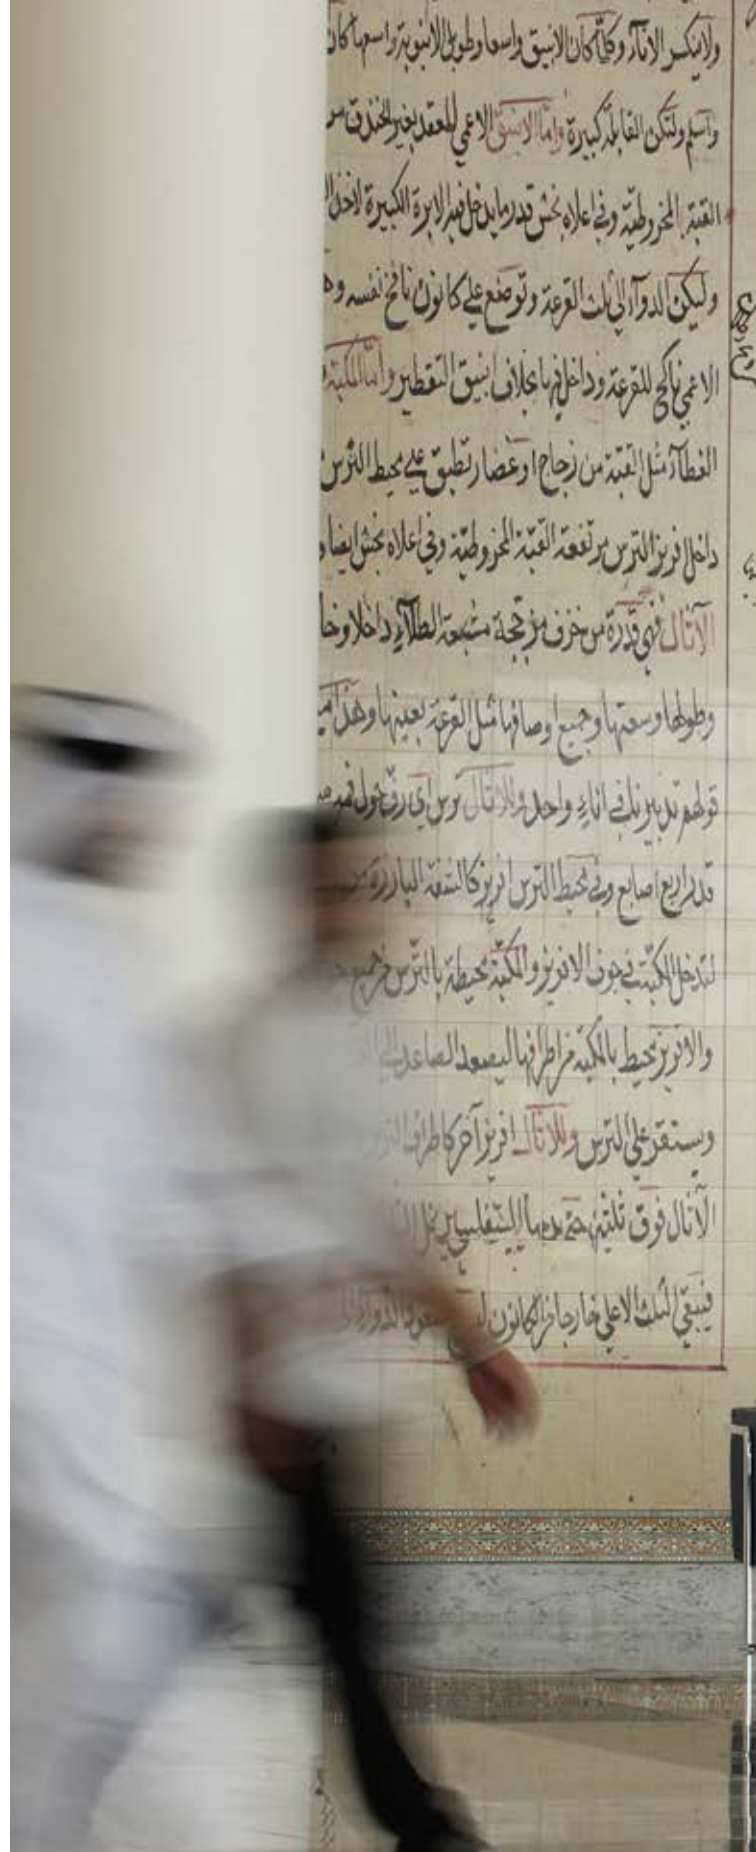 ولا ينكسر الاناء وكلما كان الانبيق واسعا وطويل الانبوبة واسعها كان
واسلم ولتكن القابلة كبيرة واما الانبيق الاعمي للعقد بغير الخندق من
القبة المخروطية وفي اعلاه بخش قدر ما يدخل فيه الابرة الكبيرة لاخذ
وليكن الدوآء الي ثلث القرعة وتوضع علي كانون نافخ نفسه
الاعمي ناكح للقرعة وداخل فيها بخلاف انبيق التقطير واما المكبة
الغطآء مثل القبة من زجاج او غضار تطبق علي محيط الترس
داخل افريز الترس مرتفعة القبة المخروطية وفي اعلاه بخش ايضا
الآثال فهي قدرة من خزف مزججة مشبعة الطلآء داخلا
وطولها وسعتها وجميع اوصافها مثل القرعة بعينها وهذا
قولهم تدبيرنا في اناء واحد وللاثال ترس اي رف حول
قدر اربع اصابع وفي محيط الترس افريز كالشفة البارزة
لتدخل المكبة في جوف الافريز والمكبة محيطة بالترس من جميع
والافريز محيط بالمكبة من اطرافها ليصعد الصاعد الي
ويستقر علي الترس وللاثال افريز آخر كاطراف
الآثال فوق ثلثيها حتي
فيبقي الثلث الاعلي خارجا من الكانون